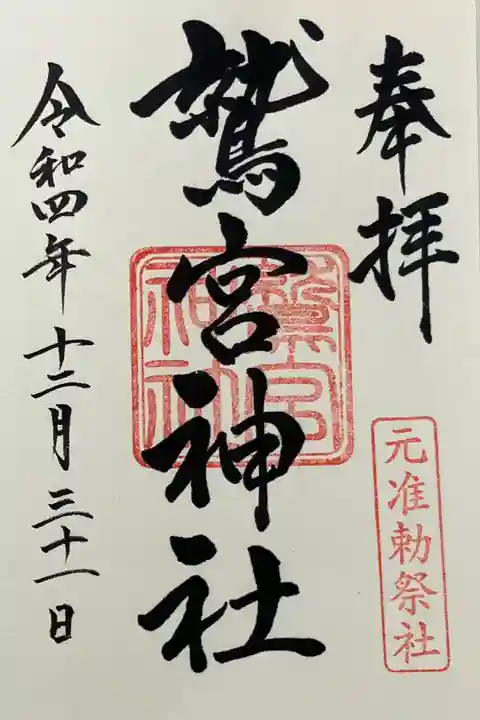 奉拝
元准勅祭社
鷲宮神社
鷲宮神社
令和四年十二月三十一日